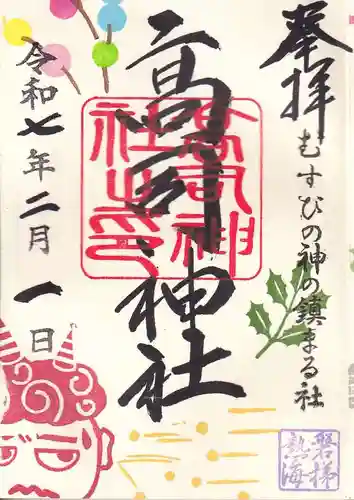 奉拝
むすひの神の鎮まる社
高司神社
高司神社之印
令和七年二月一日
磐梯
熱海